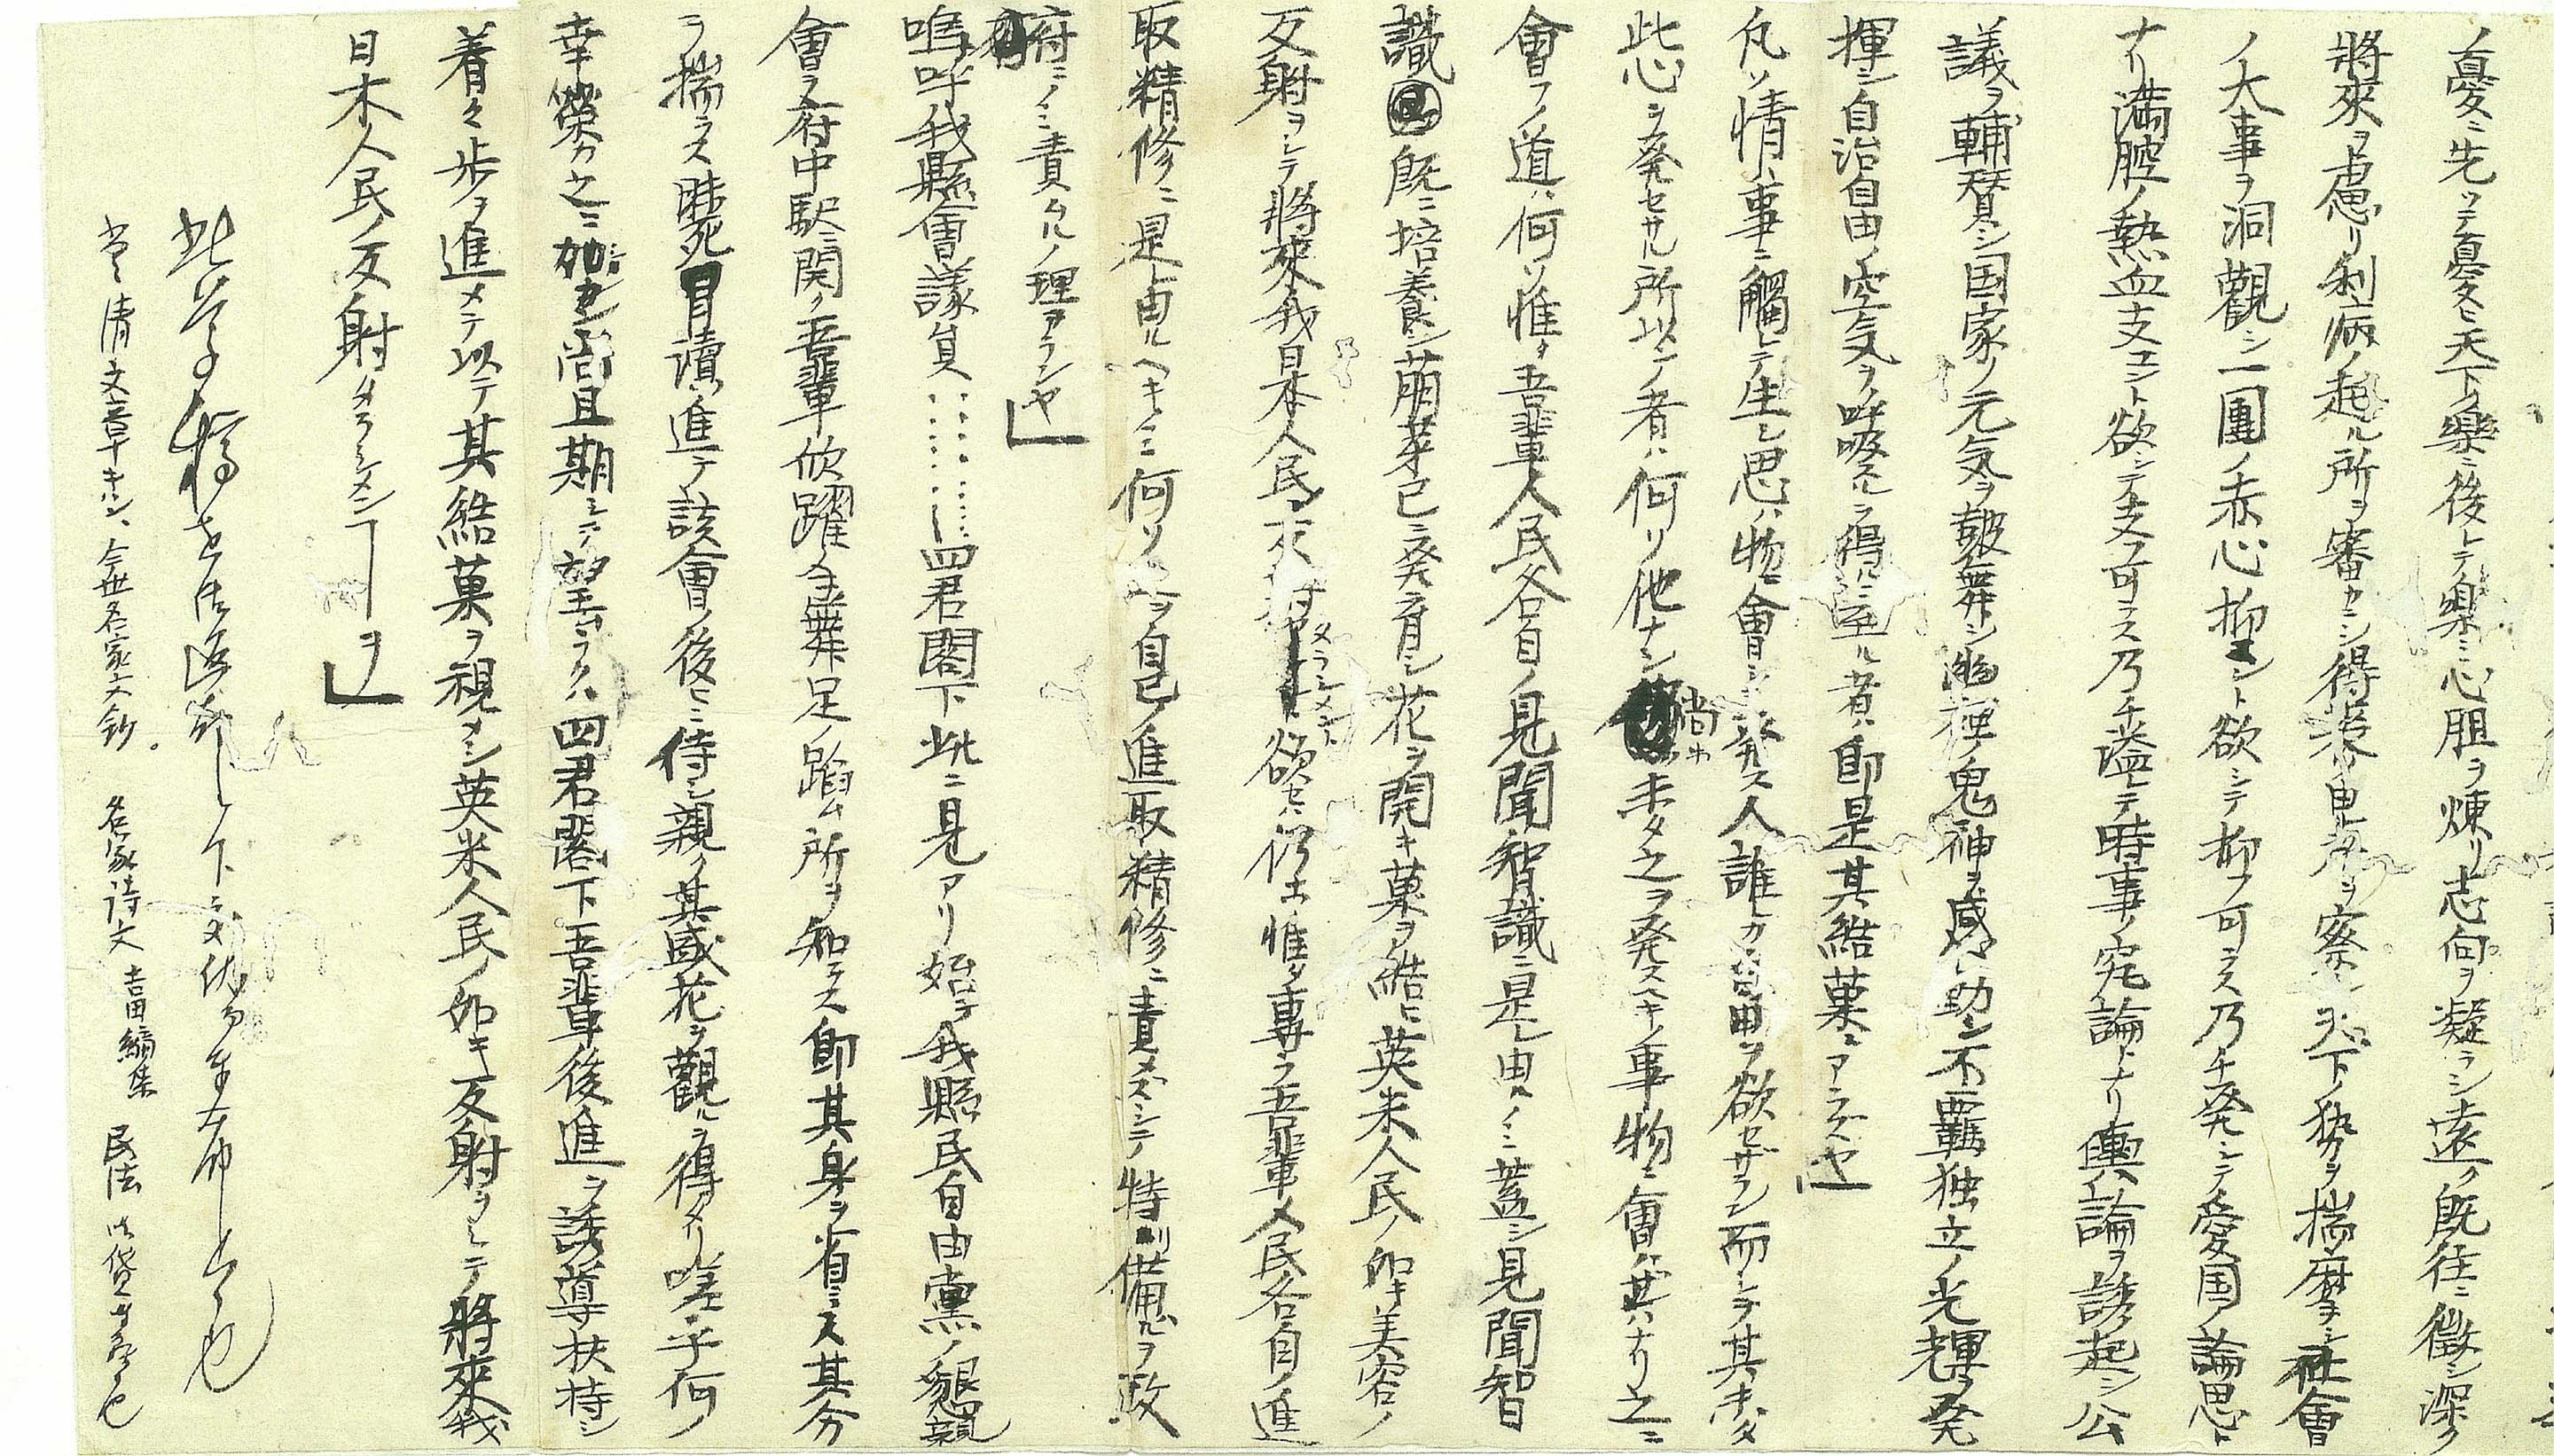 ノ憂ニ先ツテ憂ヒ天下ノ樂ニ後レテ樂ミ心胆ヲ煉リ志向ヲ凝ラシ遠ク既往ニ徴シ深ク
將來ヲ慮リ利病ノ起ル所ヲ審カニシ得深ノ由ル所ヲ察シ天下ノ勢ヲ揣摩シ社會
ノ大事ヲ洞觀シ一團ノ赤心抑エント欲シテ抑フ可ラス乃チ発シテ愛国ノ論思ト
ナリ満腔ノ熱血支エント欲シテ支フ可ラス乃チ溢レテ時事ノ究論トナリ輿論ヲ誘起シ公
議ヲ輔賛シ国家ノ元気ヲ皷舞シ幽冥ノ鬼神ヲ感シ助シ不羈独立ノ光輝ヲ発
揮シ自治自由ノ空気ヲ呼吸スルヲ得ルニ至ル者ハ即是其結菓ニアラズヤ」
凡ソ情ハ事ニ觸レテ生シ思ハ物ニ會シテ発ス人誰レカ自由ヲ欲セザラン而シテ其未ダ
此心ヲ発セサル所以ノ者ハ何ソ他ナシ尚ホ未タ之ヲ発スヘキノ事物ニ會ハザルナリ之ニ
會フノ道ハ何ソ惟タ吾輩人民各自ノ見聞智識ニ是レ由ルノミ蓋シ見聞智
識既ニ培養シ萠芽已ニ発育シ花ヲ開キ菓ヲ結ヒ英米人民ノ如キ美容ノ
反射ヲシテ將來我日本人民ノ反射タラシメント欲セハ仍ホ惟タ專ラ吾輩人民各自ノ進
取精修ニ是レ由ルヘキノミ何ソ之ヲ自己ノ進取精修ニ責メズシテ特リ備ルヲ政
府ニノミ責ムルノ理アランヤ」
嗚呼我縣會議員……四君閣下此ニ見アリ始テ我縣民自由黨ノ懇親
會ヲ府中駅ニ開ク吾輩欣躍手舞足ノ蹈ム所ヲ知ラス即其身ヲ省ミス其分
ヲ揣ラス昧死冒瀆進テ該會ノ後ニ侍シ親ク其盛花ヲ觀ルヲ得タリ嗟乎何ノ
幸榮カ之ニ加カン尚且期シテ望ムラクハ四君閣下吾輩後進ヲ誘導扶持シ
着々歩ヲ進メテ以テ其結菓ヲ視メシ英米人民ノ如キ反射ヲシテ將來我
日本人民ノ反射タラシメンヿヲ」
清文章キハン、今世名家文鈔。　名家詩文　吉田編集　民法